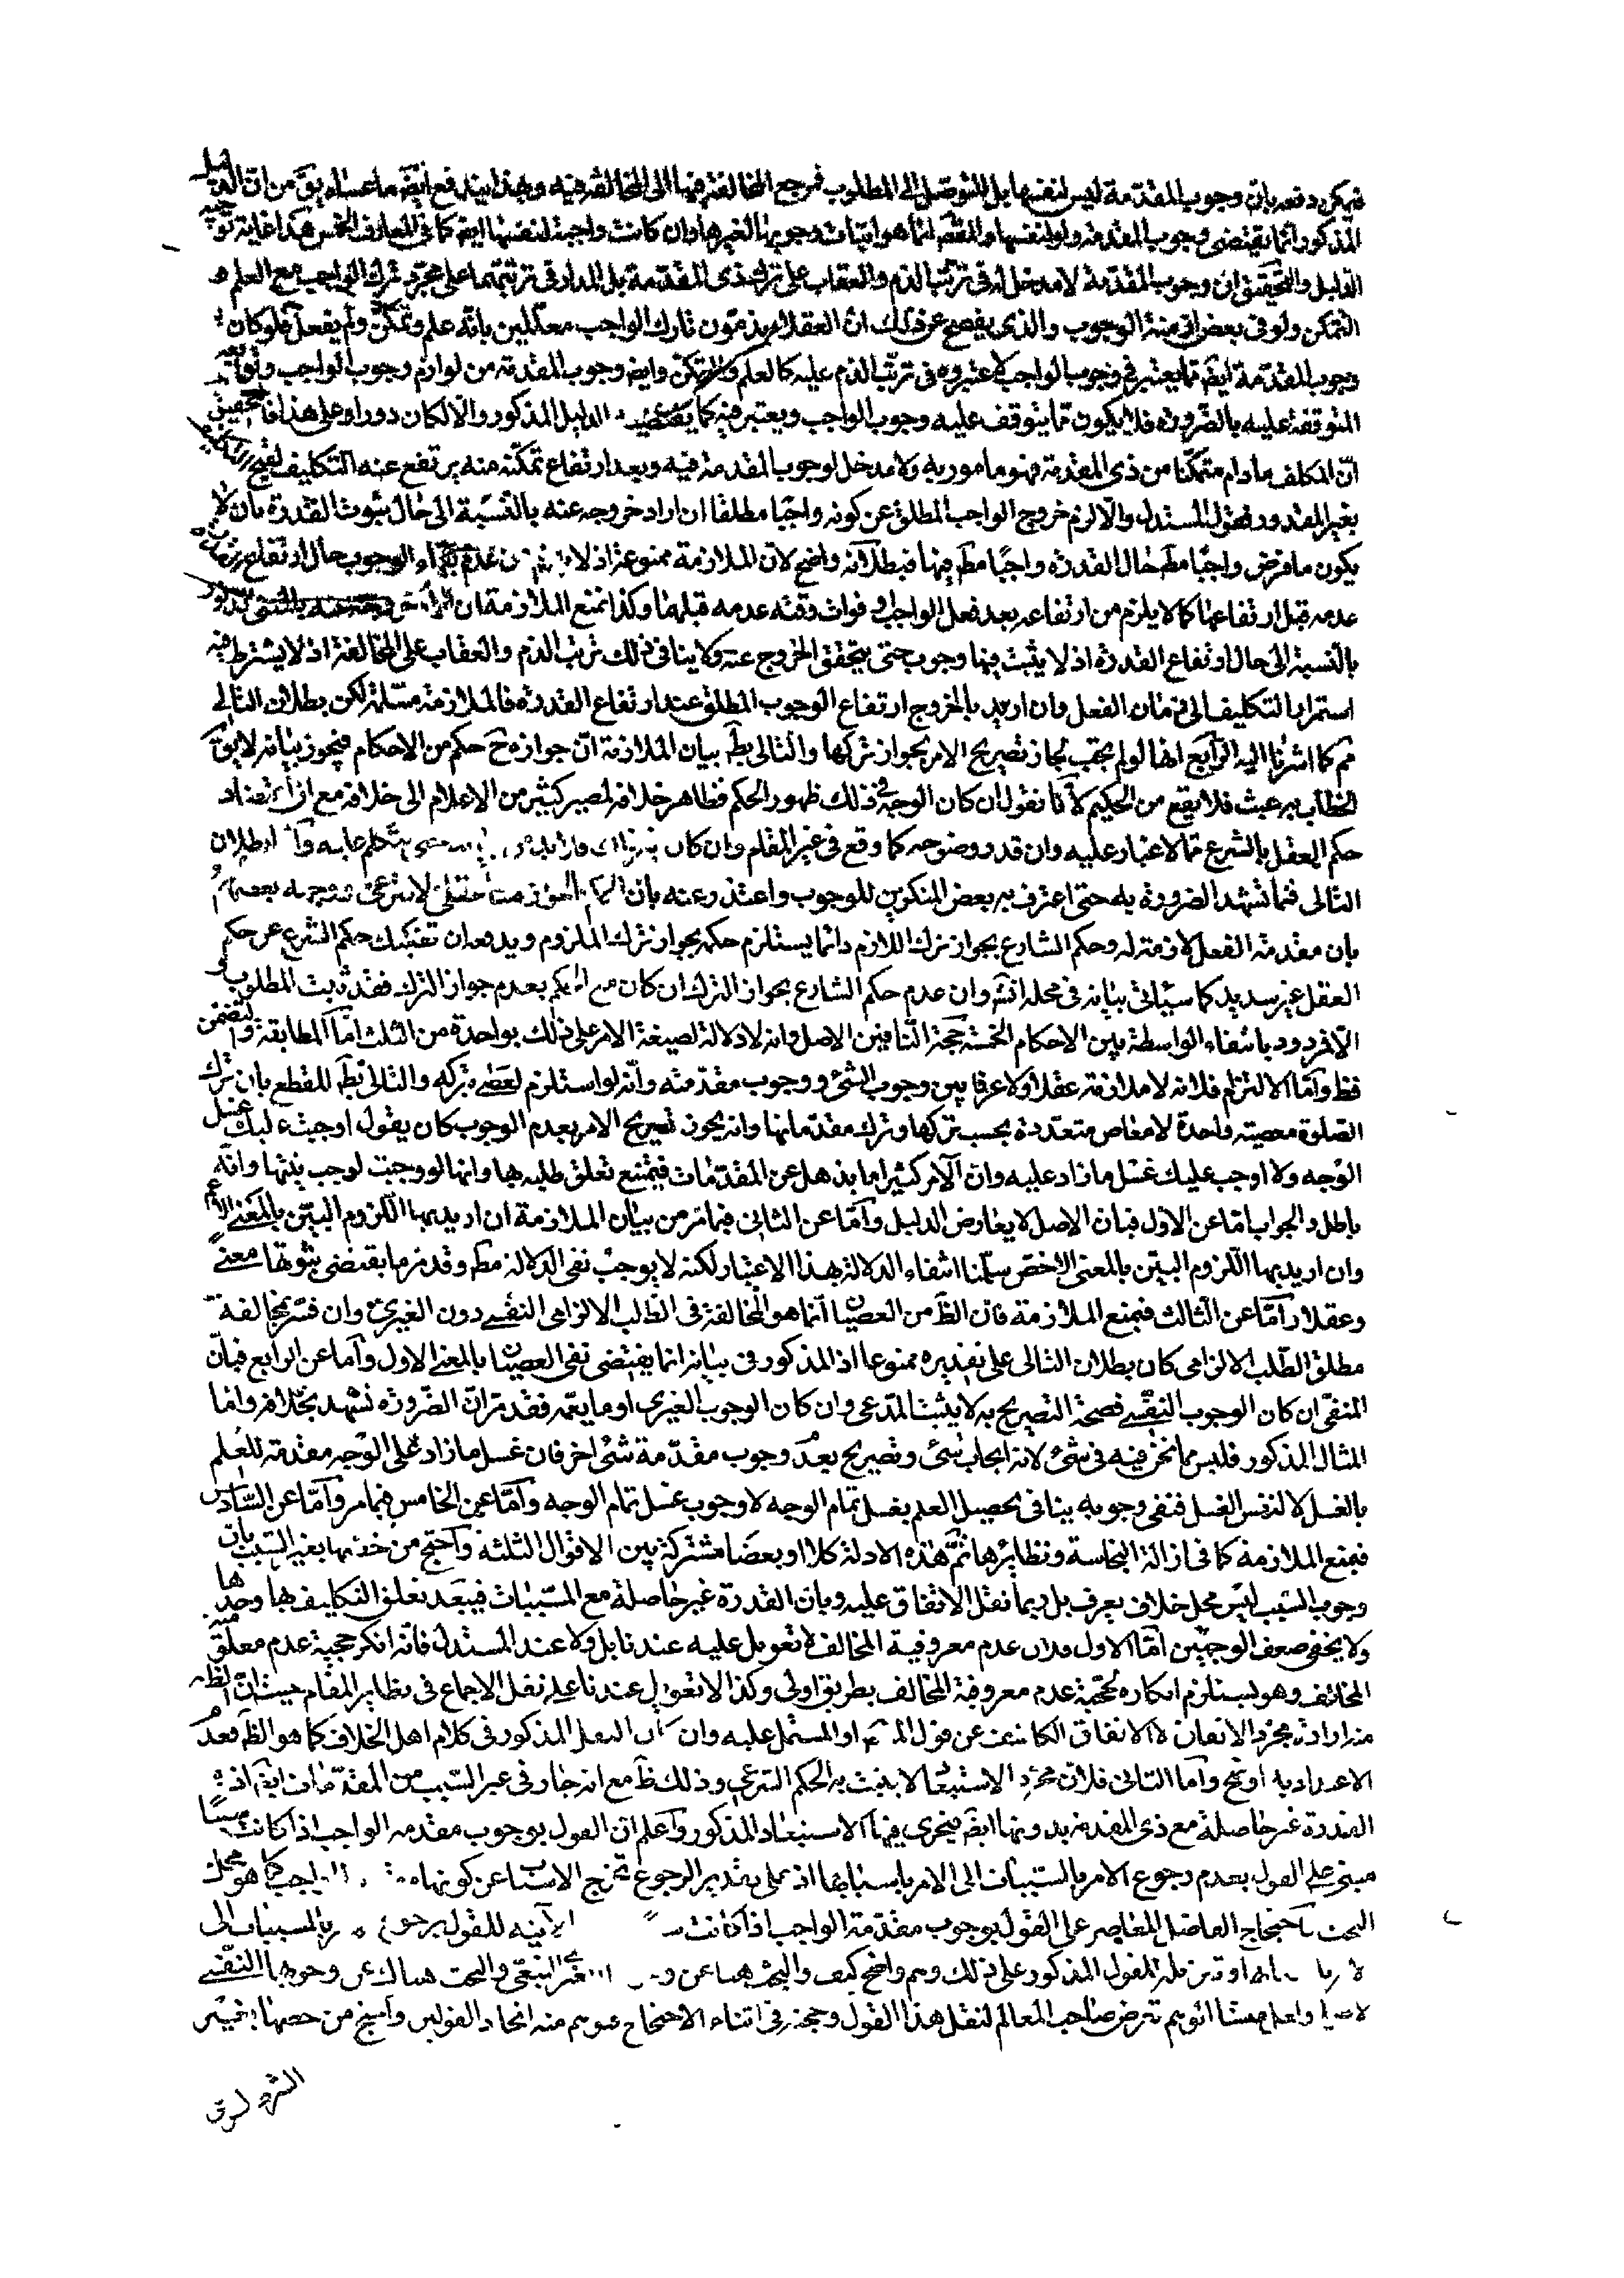 فيمكن دفعه بان وجوب المقدمة ليس لنفسها بل للتوصل الى المطلوب فمرجع المخالفة فيها الى المخالفة فيه وبهذا يندفع ايضا ما عساه يق من ان الدليل
المذكور انما يقتضى وجوب المقدمة ولو لنفسها والمقص انما هو اثبات وجوبها لغيرها وان كانت واجبة لنفسها ايضا كما فى المعارف الخمس هكذا غاية توجيه
الدليل والتحقيق ان وجوب المقدمة لا مدخل له فى ترتب الذم والعقاب على ترك ذى المقدمة بل المدار فى ترتبهما على مجرد ترك الواجب مع العلم و
التمكن ولو فى بعض ازمنة الوجوب والذى يفصح عن ذلك ان العقلاء يذمون تارك الواجب معللين بانه علم وتمكن ولم يفعل فلو كان
وجوب المقدمة ايضا مما يعتبر فى وجوب الواجب لاعتبروه فى ترتب الذم عليه كالعلم والتمكن وايضا وجوب المقدمة من لوازم وجوب الواجب وتوابعه
المتوقفة عليه بالضرورة فلا يكون مما يتوقف عليه وجوب الواجب ويعتبر فيه كما يقتضيه الدليل المذكور والا لكان دورا وعلى هذا فالتحقيق
ان المكلف ما دام متمكنا من ذى المقدمة فهو مامور به ولا مدخل لوجوب المقدمة فيه وبعد ارتفاع تمكنه منه يرتفع عنه التكليف لقبح التكليف
بغير المقدور فقول المستدل والا لزم خروج الواجب المطلق عن كونه واجبا مطلقا ان اراد خروجه عنه بالنسبة الى حال ثبوت القدرة بان لا
يكون ما فرض واجبا مط حال القدرة واجبا مط فيها فبطلانه واضح لان الملازمة ممنوعة اذ لا يلزم من عدم بقاء الوجوب حال ارتفاع القدرة
عدمه قبل ارتفاعها كما لا يلزم من ارتفاعه بعد فعل الواجب او فوات وقته عدمه قبلهما وكذا نمنع الملازمة ان اراد خروجه عنه بالمعنى المذكور
بالنسبة الى حال ارتفاع القدرة اذ لا يثبت فيها وجوب حتى يتحقق الخروج عنه ولا ينافى ذلك ترتب الذم والعقاب على المخالفة اذ لا يشترط فيه
استمرار التكليف الى زمان الفعل وان اريد بالخروج ارتفاع الوجوب المطلق عند ارتفاع القدرة فالملازمة مسلمة لكن بطلان التالى
مم كما اشرنا اليه الرابع انها لو لم تجب لجاز تصريح الامر بجواز تركها والتالى بط بيان الملازمة ان جوازه ح حكم من الاحكام فيجوز بيانه لا يق
الخطاب به عبث فلا يقع من الحكيم لانا نقول ان كان الوجه فى ذلك ظهور الحكم فظاهر خلافه لمصير كثير من الاعلام الى خلافه مع ان اعتضاد
حكم العقل بالشرع مما لا غبار عليه وان قدر وضوحه كما وقع فى غير المقام وان كان حتى يتكلم عليه واما بطلان
التالى فمما تشهد الضرورة به حتى اعترف به بعض المنكرين للوجوب واعتذر عنه بان عقلى لا شرعى ووجهه بعضهم
بان مقدمة الفعل لازمة له وحكم الشارع بجواز ترك اللازم دائما يستلزم حكمه بجواز ترك الملزوم ويدفعه ان تفكيك حكم الشرع عن حكم
العقل غير سديد كما سياتى بيانه فى محله انش وان عدم حكم الشارع بجواز الترك ان كان مع الحكم بعدم جواز الترك فقد ثبت المطلوب و
الا فمردود بانتفاء الواسطة بين الاحكام الخمسة حجة النافين الاصل وانه لا دلالة لصيغة الامر على ذلك بواحدة من الثلث اما المطابقة والتضمن
فظ واما الالتزام فلانه لا ملازمة عقلا ولا عرفا بين وجوب الشئ ووجوب مقدمته وانه لو استلزم لعصى بتركه والتالى بط للقطع بان ترك
الصلوة معصية واحدة لا معاص متعددة بحسب تركها وترك مقدماتها وانه يجوز تصريح الامر بعدم الوجوب كان يقول اوجبت عليك غسل
الوجه ولا اوجب عليك غسل ما زاد عليه وان الامر كثيرا ما يذهل عن المقدمات فيمتنع تعلق طلبه بها وانها لو وجبت لوجب نيتها وانه
باطل والجواب اما عن الاول فبان الاصل لا يعارض الدليل واما عن الثانى فبما مر من بيان الملازمة ان اريد بها اللزوم البين بالمعنى الاعم
وان اريد بها اللزوم البين بالمعنى الاخص سلمنا انتفاء الدلالة بهذا الاعتبار لكنه لا يوجب نفى الدلالة مط وقد مر ما يقتضى ثبوتها معنى
وعقلا واما عن الثالث فبمنع الملازمة فان الظ من العصيان انما هو المخالفة فى الطلب الالزامى النفسى دون الغيرى وان فسر بمخالفة
مطلق الطلب الالزامى كان بطلان التالى على تقديره ممنوعا اذ المذكور فى بيانه انما يقتضى نفى العصيان بالمعنى الاول واما عن الرابع فبان
المنفى ان كان الوجوب النفسى فصحة التصريح به لا يثبت المدعى وان كان الوجوب الغيرى او ما يعمه فقد مر ان الضرورة تشهد بخلافه واما
المثال المذكور فليس مما نحن فيه فى شئ لانه ايجاب شئ وتصريح بعدم وجوب مقدمة شئ اخر فان غسل ما زاد على الوجه مقدمة للعلم
بالغسل لا لنفس الغسل فنفى وجوبه ينافى تحصيل العلم بغسل تمام الوجه لا وجوب غسل تمام الوجه واما عن الخامس فبما مر واما عن السادس
فبمنع الملازمة كما فى ازالة النجاسة ونظايرها ثم هذه الادلة كلا او بعضا مشتركة بين الاقوال الثلثة واحتج من خصها بغير السبب بان
وجوب السبب ليس محل خلاف يعرف بل ربما نقل الاتفاق عليه وبان القدرة غير حاصلة مع المسببات فيبعد تعلق التكليف بها وحدها
ولا يخفى ضعف الوجهين اما الاول فلان عدم معروفية المخالف لا تعويل عليه عندنا بل ولا عند المستدل فانه انكر حجية عدم معلومية
المخالف وهو يستلزم انكاره لحجية عدم معروفية المخالف بطريق اولى وكذا لا تعويل عندنا على نقل الاجماع فى نظاير المقام حيث ان الظ
منه ارادة مجرد الاتفاق لا الاتفاق الكاشف عن قول المعصوم او المشتمل عليه وان كان النقل المذكور فى كلام اهل الخلاف كما هو الظ فعدم
الاعتداد به اوضح واما الثانى فلان مجرد الاستبعاد لا يثبت به الحكم الشرعى وذلك ظ مع انه جار فى غير السبب من المقدمات ايضا اذ
القدرة غير حاصلة مع ذى المقدمة بدونها ايضا فيجرى فيها الاستبعاد المذكور واعلم ان القول بوجوب مقدمة الواجب اذا كانت سببا
مبنى على القول بعدم رجوع الامر بالمسببات الى الامر باسبابها اذ على تقدير الرجوع تخرج الاسباب عن كونها الواجب كما هو محل
البحث فاحتجاج الفاضل المعاصر على القول بوجوب مقدمة الواجب اذا كانت سببا الاتية للقول برجوع بالمسببات الى
او تنزيله القول المذكور على ذلك وهم واضح كيف والبحث هنا عن الغيرى التبعى والبحث هناك عن وجوبها النفسى
الاصلى واعلم تعرض صاحب المعالم لنقل هذا القول وحجته فى اثناء الاحتجاج يوهم منه اتحاد القولين واحتج من خصها بغير
الشرط